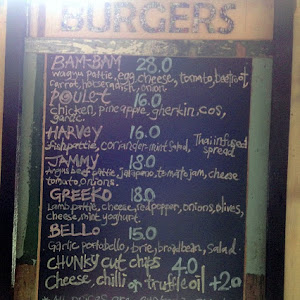 BURGERS
BAM-BAM 28.0
wagyu pattie, egg, cheese, tomato, beetroot,
carrot, horseradish, onion.
POULET 16.0
chicken, pineapple, gherkin, cos,
garlic.
HARVEY 16.0
fish pattie, coriander, mint salad, Thai infused
spread
JAMMY 18.0
Angus beef pattie, jalapano, tomato jam, cheese
tomato, onions.
GREEKO 18.0
Lamb pattie, cheese, red pepper, onions, olives,
cheese, mint yoghurt.
BELLO 15.0
Garlic portobello, brie, broadbean, salad.
CHUNKY cut chips 4.0
cheese, chilli or truffle oil +2.0